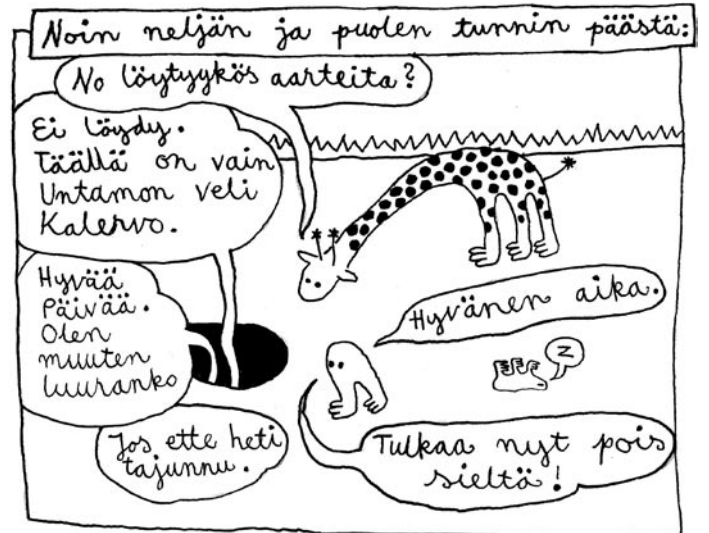 Noin neljän ja puolen tunnin päästä:
No löytyykös aarteita?
Ei löydy.
Täällä on vain
Untamon veli
Kalervo.
Hyvää
Päivää.
Olen
muuten
luuranko
Jos ette heti
tajunnu.
Hyvänen aika.
Z
Tulkaa nyt pois
sieltä!